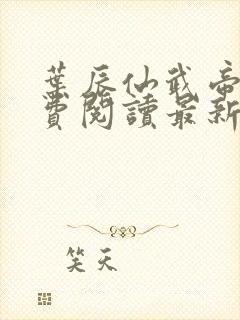 葉辰仙武帝
費閱讀最新
笑天